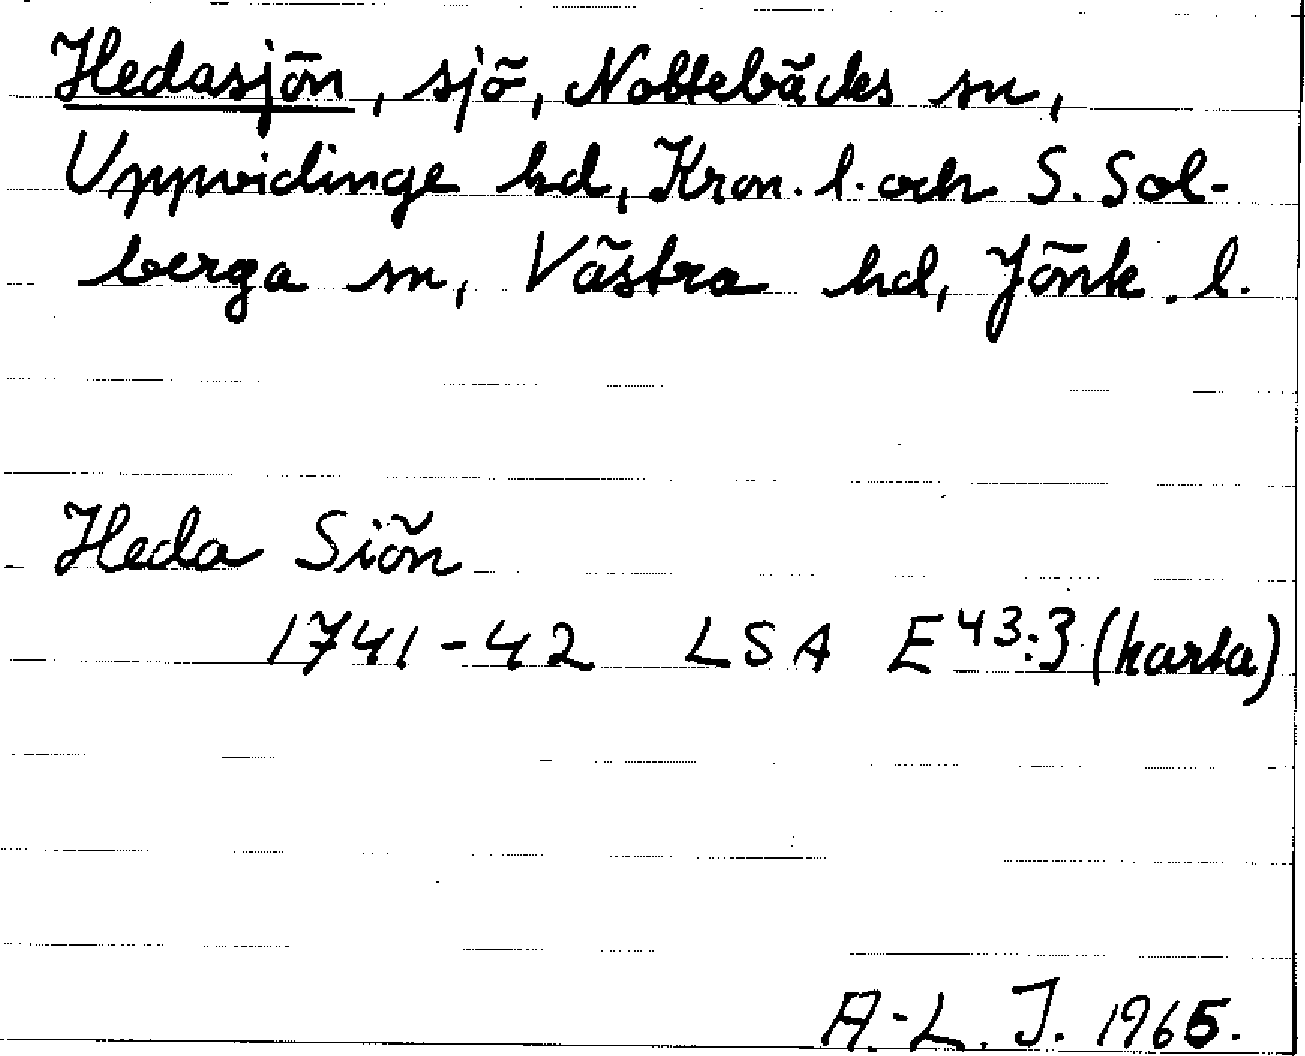 Hedasjön, sjö, Nottebäcks sn,
Uppvidinge hd, Kron. l. och S. Sol-
berga sn, Västra hd, Jönk. l.
Heda Siön
1741-42 LSA E43:3 (karta)
A.-L. J. 1965.